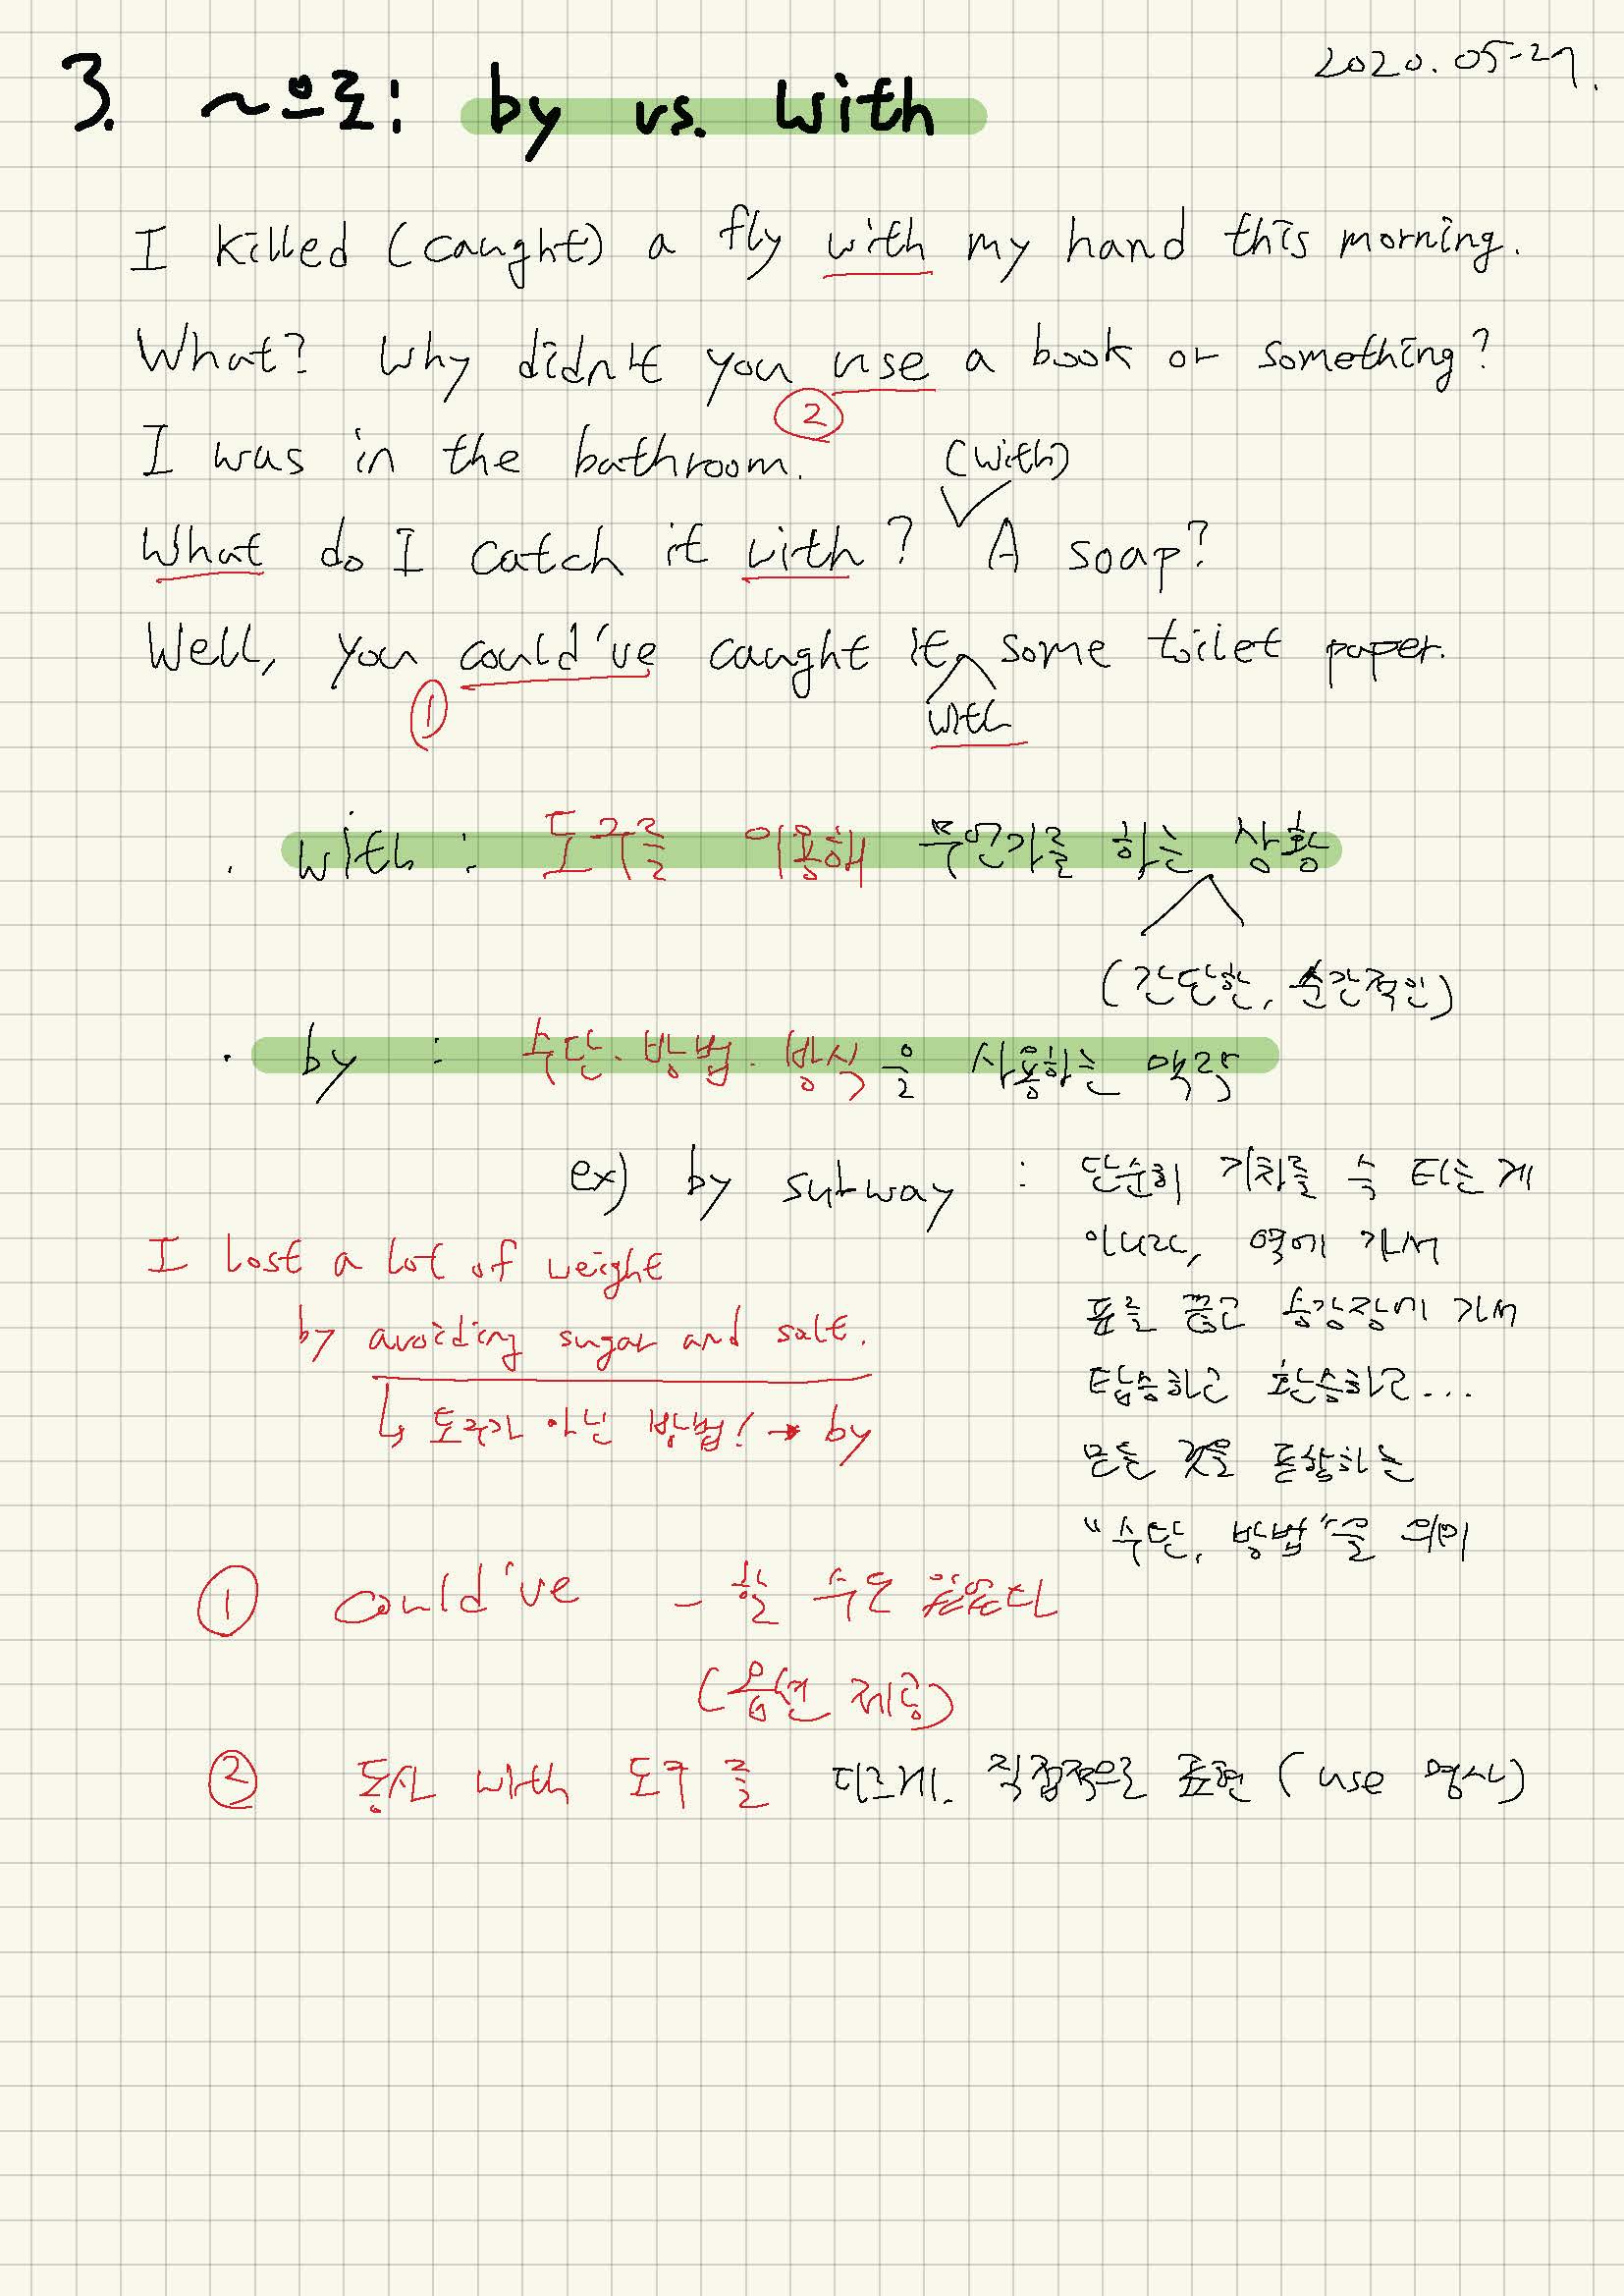 2020. 05-27.
3. ~으로: by vs. with
I killed (caught) a fly with my hand this morning.
What? Why didn't you use a book or something?
②
I was in the bathroom.
(with)
What do I catch it with? A soap?
Well, you could've caught it some toilet paper.
① with
· with : 도구를 이용해 무언가를 하는 상황
(간단한, 순간적인)
· by : 수단·방법·방식을 사용하는 맥락
ex) by subway : 단순히 기차를 슥 타는게
아니라, 역에 가서
표를 끊고 승강장에 가서
탑승하고 환승하고...
모든 것을 포함하는
"수단, 방법"을 의미
I lost a lot of weight
by avoiding sugar and salt.
↳ 도구가 아닌 방법! → by
① could've - 할 수도 있었다
(옵션 제공)
② 동사 with 도구 를 다르게. 직접적으로 표현 (use 명사)